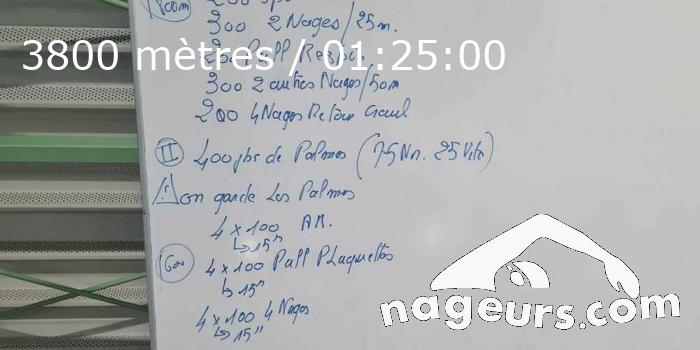 300 2 Nages/25m.
3800 mètres / 01:25:00
200 Pull
300 2 autres Nages/50m
200 4 Nages Retour Craul
II 400 jbs de Palmes (75 Nn. 25 Vite)
on garde les Palmes
4 x 100
↳ 15"
4 x 100 Pull PLaquettes
↳ 15"
4 x 100 4 Nages
↳ 15"
nageurs.com